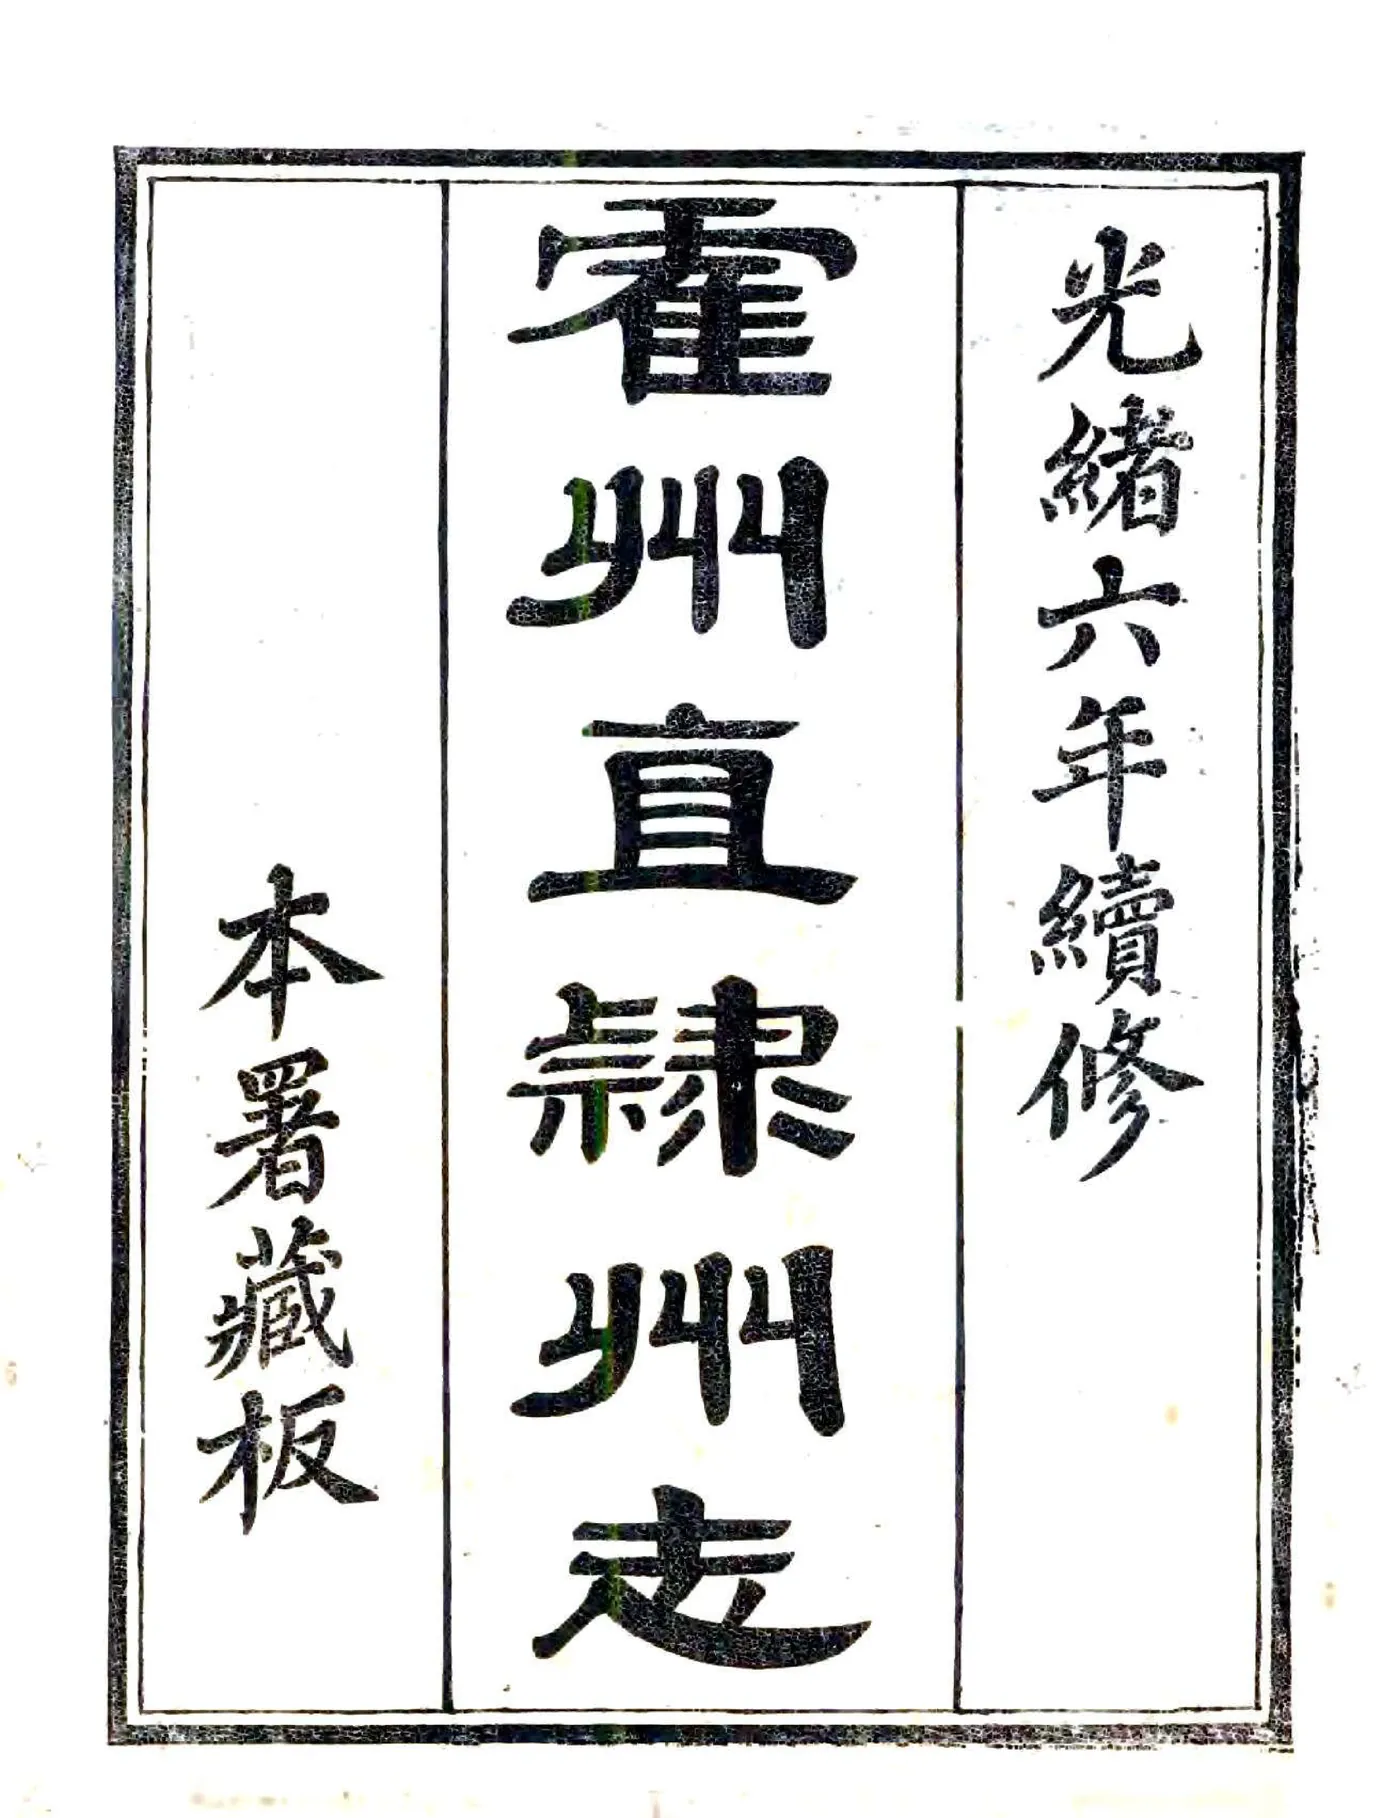 光緒六年續修
霍州直隸州志
本署藏板